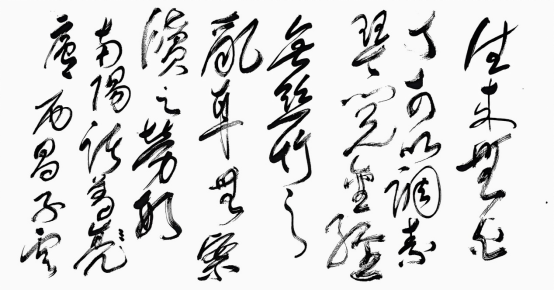 往来無白
丁可以調素
琴閱金經
無絲竹之
亂耳無案
牘之勞形
南陽諸葛亮
廬西蜀子雲